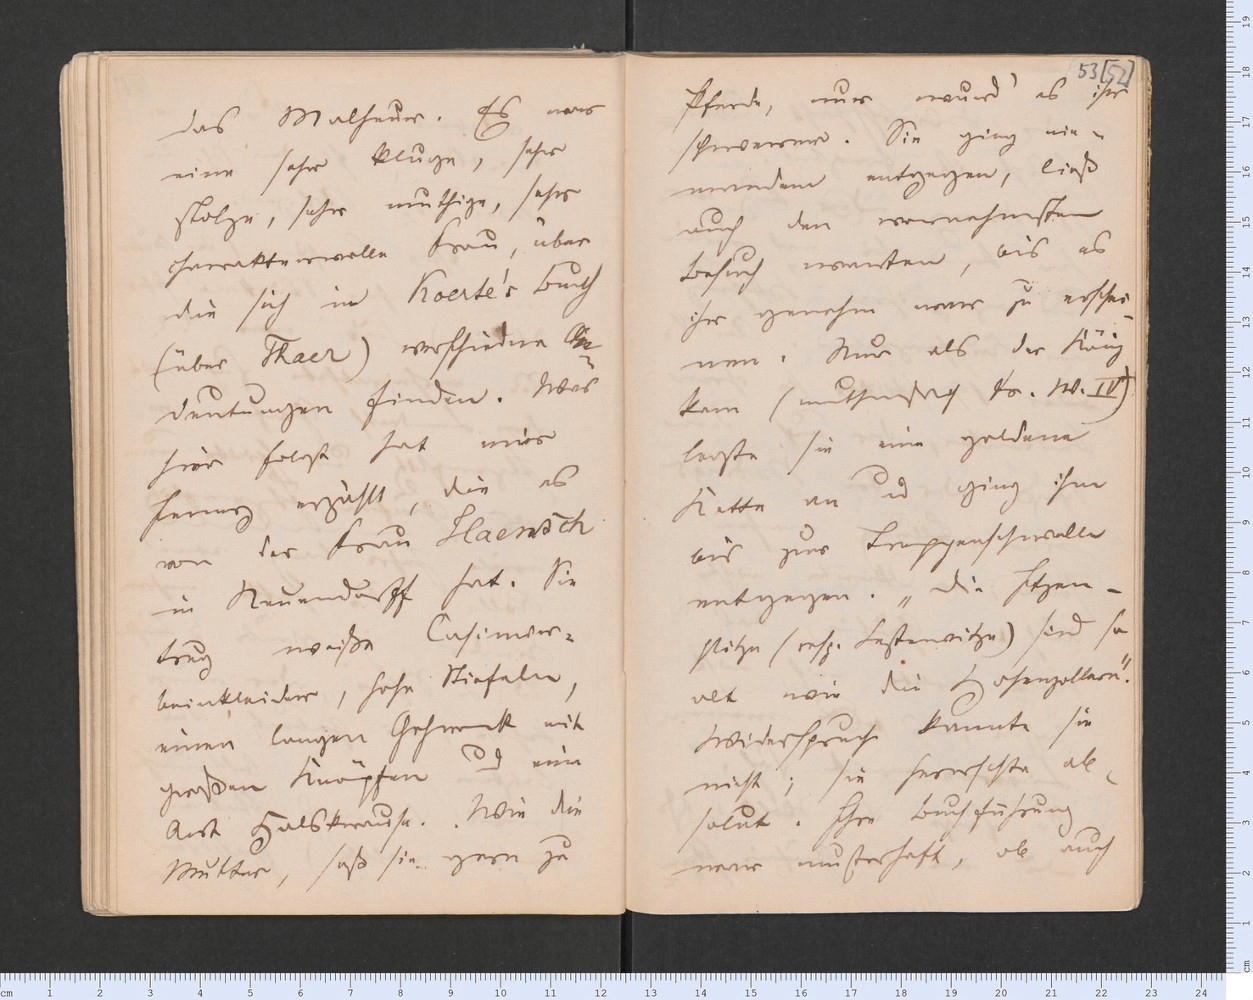 das Malheur. Es war
eine sehr kluge, sehr
stolze, sehr muthige, sehr
charaktervolle Frau, über
die sich in Koerte's Buch
(über Thaer) verschiedne An-
deutungen finden. Was
hier folgt hat mir
erzählt, die es
von der Frau Haensch
in Neuendorff hat. Sie
trug weiße Casimir-
beinkleider, hohe Stiefeln,
einen langen Gehrock mit
großen Knöpfen und eine
Art Halskrause. Wie die
Mutter, saß sie gern zu
53 [52]
Pferde, nur wurd' es ihr
schwerer. Sie ging nie-
mandem entgegen, ließ
auch den vornehmsten
Besuch warten, bis es
ihr genehm war zu erschei-
nen. Nur als der König
kam (muthmaßlich Fr. W. IV)
legte sie eine goldene
Kette an und ging ihm
bis zur Treppenschwelle
entgegen. „Die Itzen-
plitze (resp. Lestewitze) sind so
alt wie die Hohenzollern".
Widerspruch kannte sie
nicht; sie herrschte ab-
solut. Ihre Buchführung
war musterhaft, ob auch